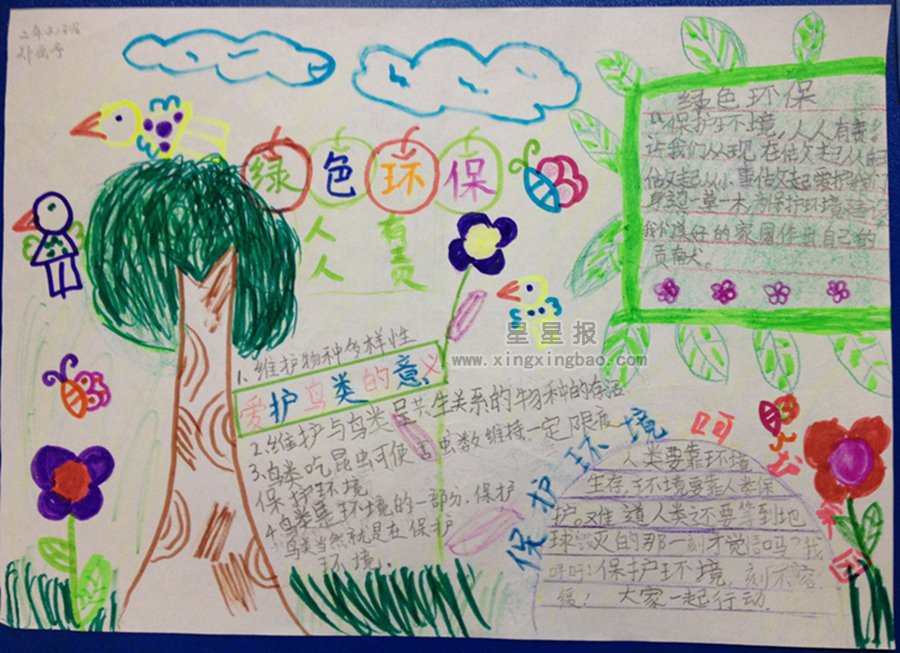 绿色环保
人人有责
绿色环保
"保护环境,人人有责"
让我们从现在做起从自
做起从小事做起爱护
身边一草一木,
我们美好的家园作出自己的
贡献。
星星报
www.xingxingbao.com
1.维护物种多样性
爱护鸟类的意义
2.维护与鸟类呈共生关系的物种的存活
3.鸟类吃昆虫可使害虫数维持一定限度
保护环境
4.鸟类是环境的一部分.保护
鸟类当然就是在保护
环境.
保护环境
人类要靠环境
生存,环境要靠人类保
护。难道人类还要等到地
球毁灭的那一刻才觉悟吗?我
呼吁:保护环境,刻不容
缓!大家一起行动.